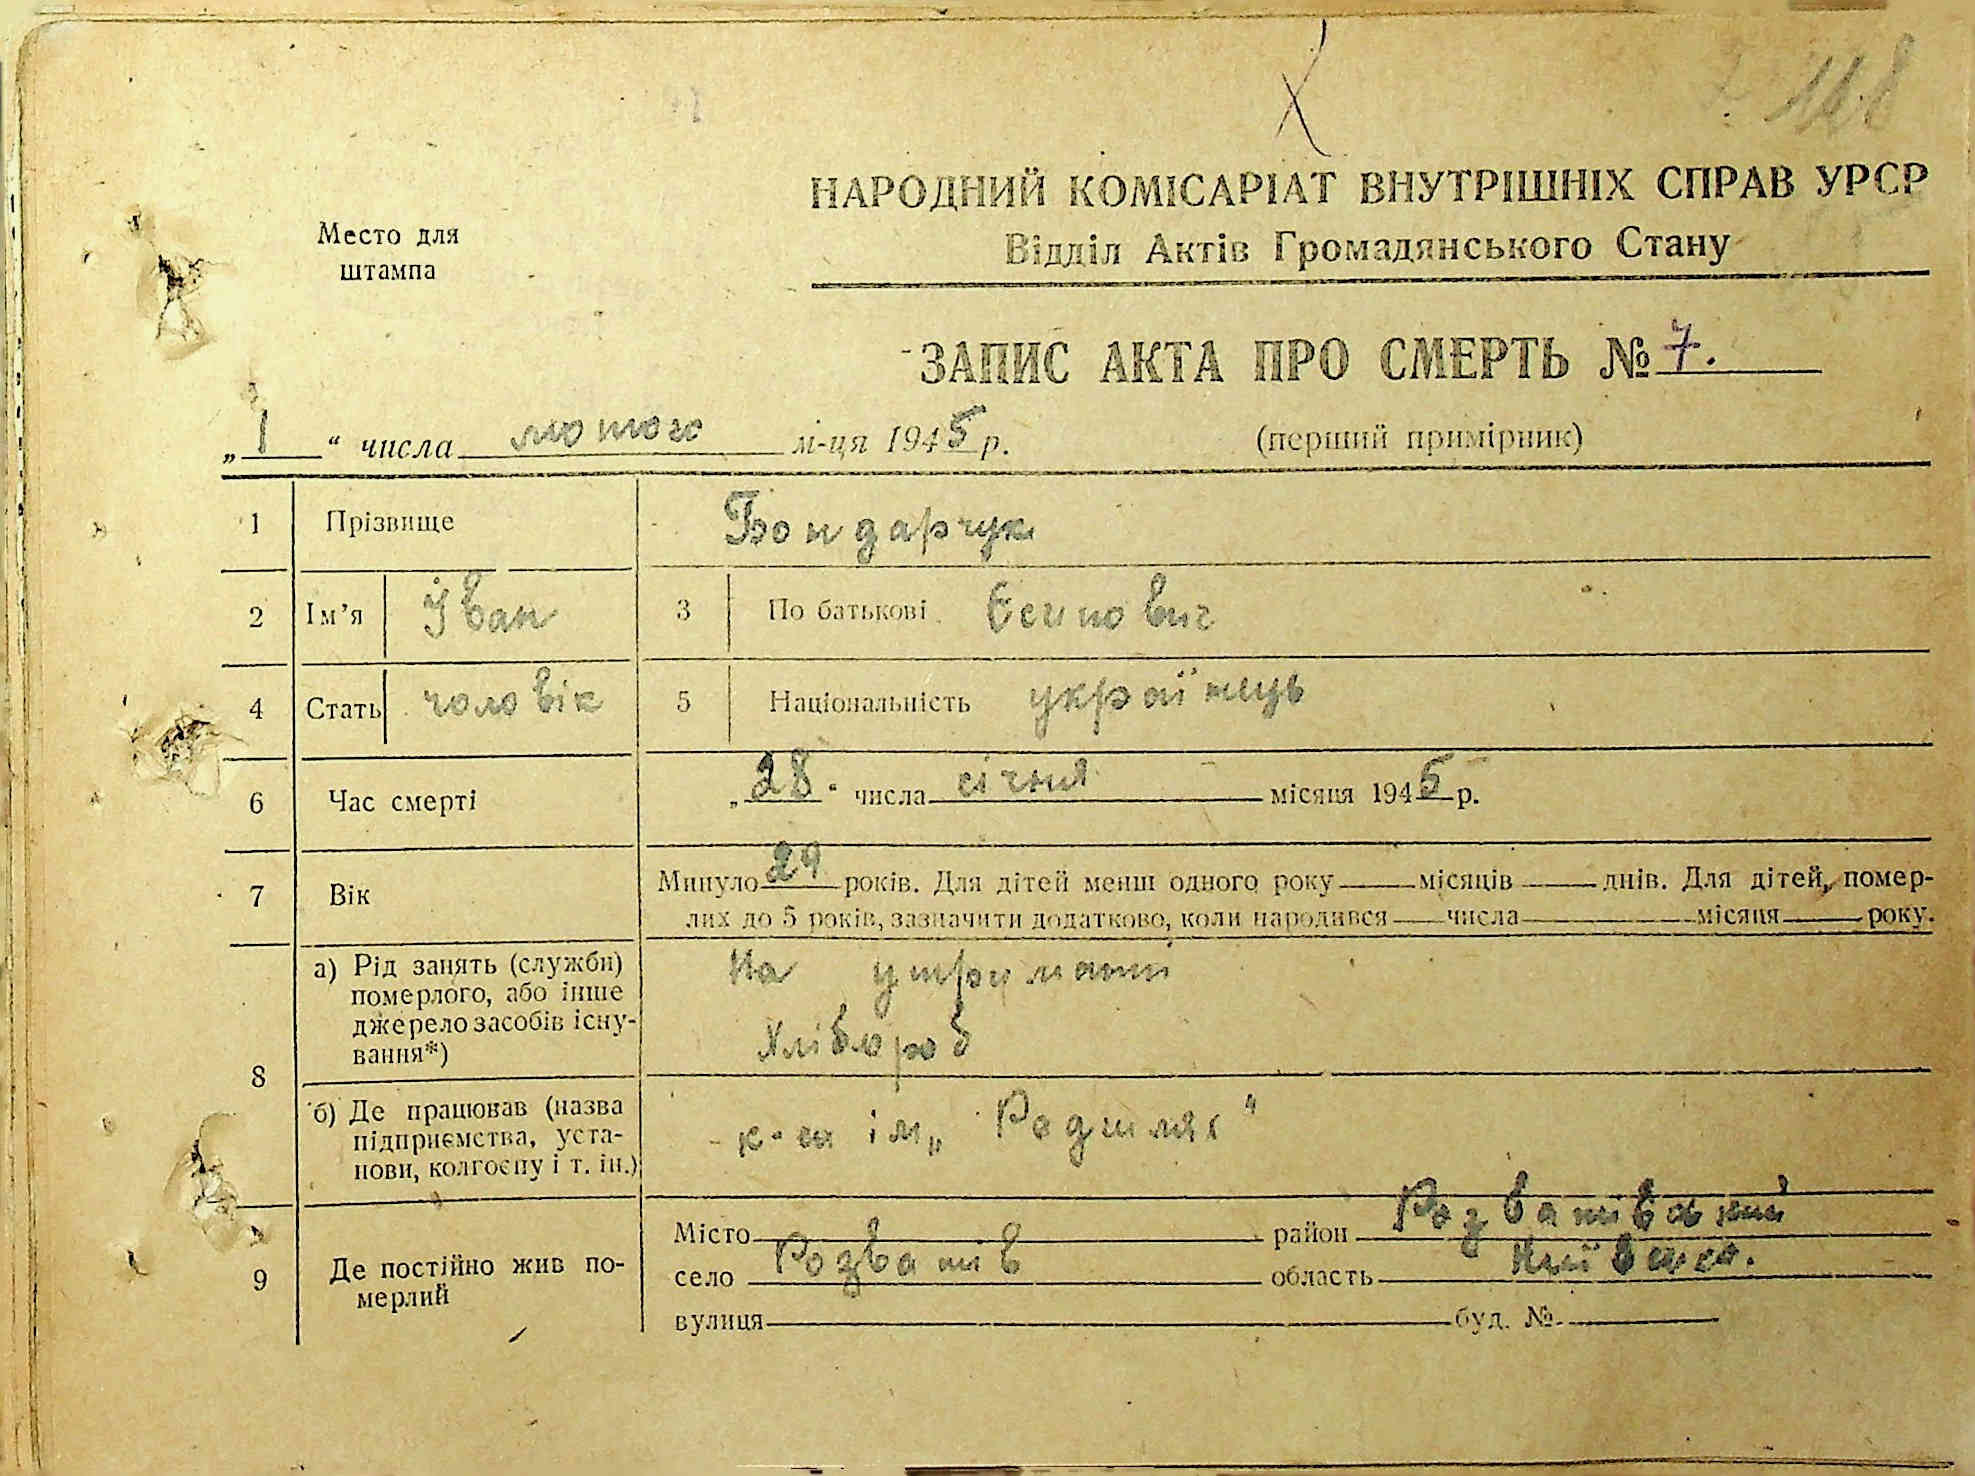 118
НАРОДНИЙ КОМІСАРІАТ ВНУТРІШНІХ СПРАВ УРСР
Место для штампа
Відділ Актів Громадянського Стану
ЗАПИС АКТА ПРО СМЕРТЬ № 7.
„1“ числа лютого м-ця 1945 р.
(перший примірник)
1 Прізвище Бондарчук
2 Ім’я Іван 3 По батькові
4 Стать чоловік 5 Національність українець
6 Час смерті „28" числа січня місяця 1945 р.
7 Вік Минуло 29 років. Для дітей менш одного року місяців днів. Для дітей, помер-
лих до 5 років, зазначити додатково, коли народився числа місяця року.
8 а) Рід занять (служби) померлого, або інше джерело засобів існу-вання*) На утриманні
Хлібороб
б) Де працював (назва підприємства, уста-нови, колгоспу і т. ін.) к-сп ім „
9 Де постійно жив по-мерлий
Місто район Розватівський
село Розватів область Київська.
вулиця буд. №